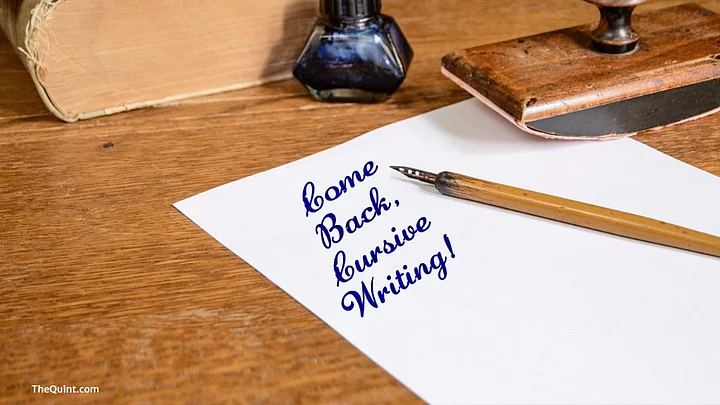 Come
Back,
Cursive
Writing!
TheQuint.com